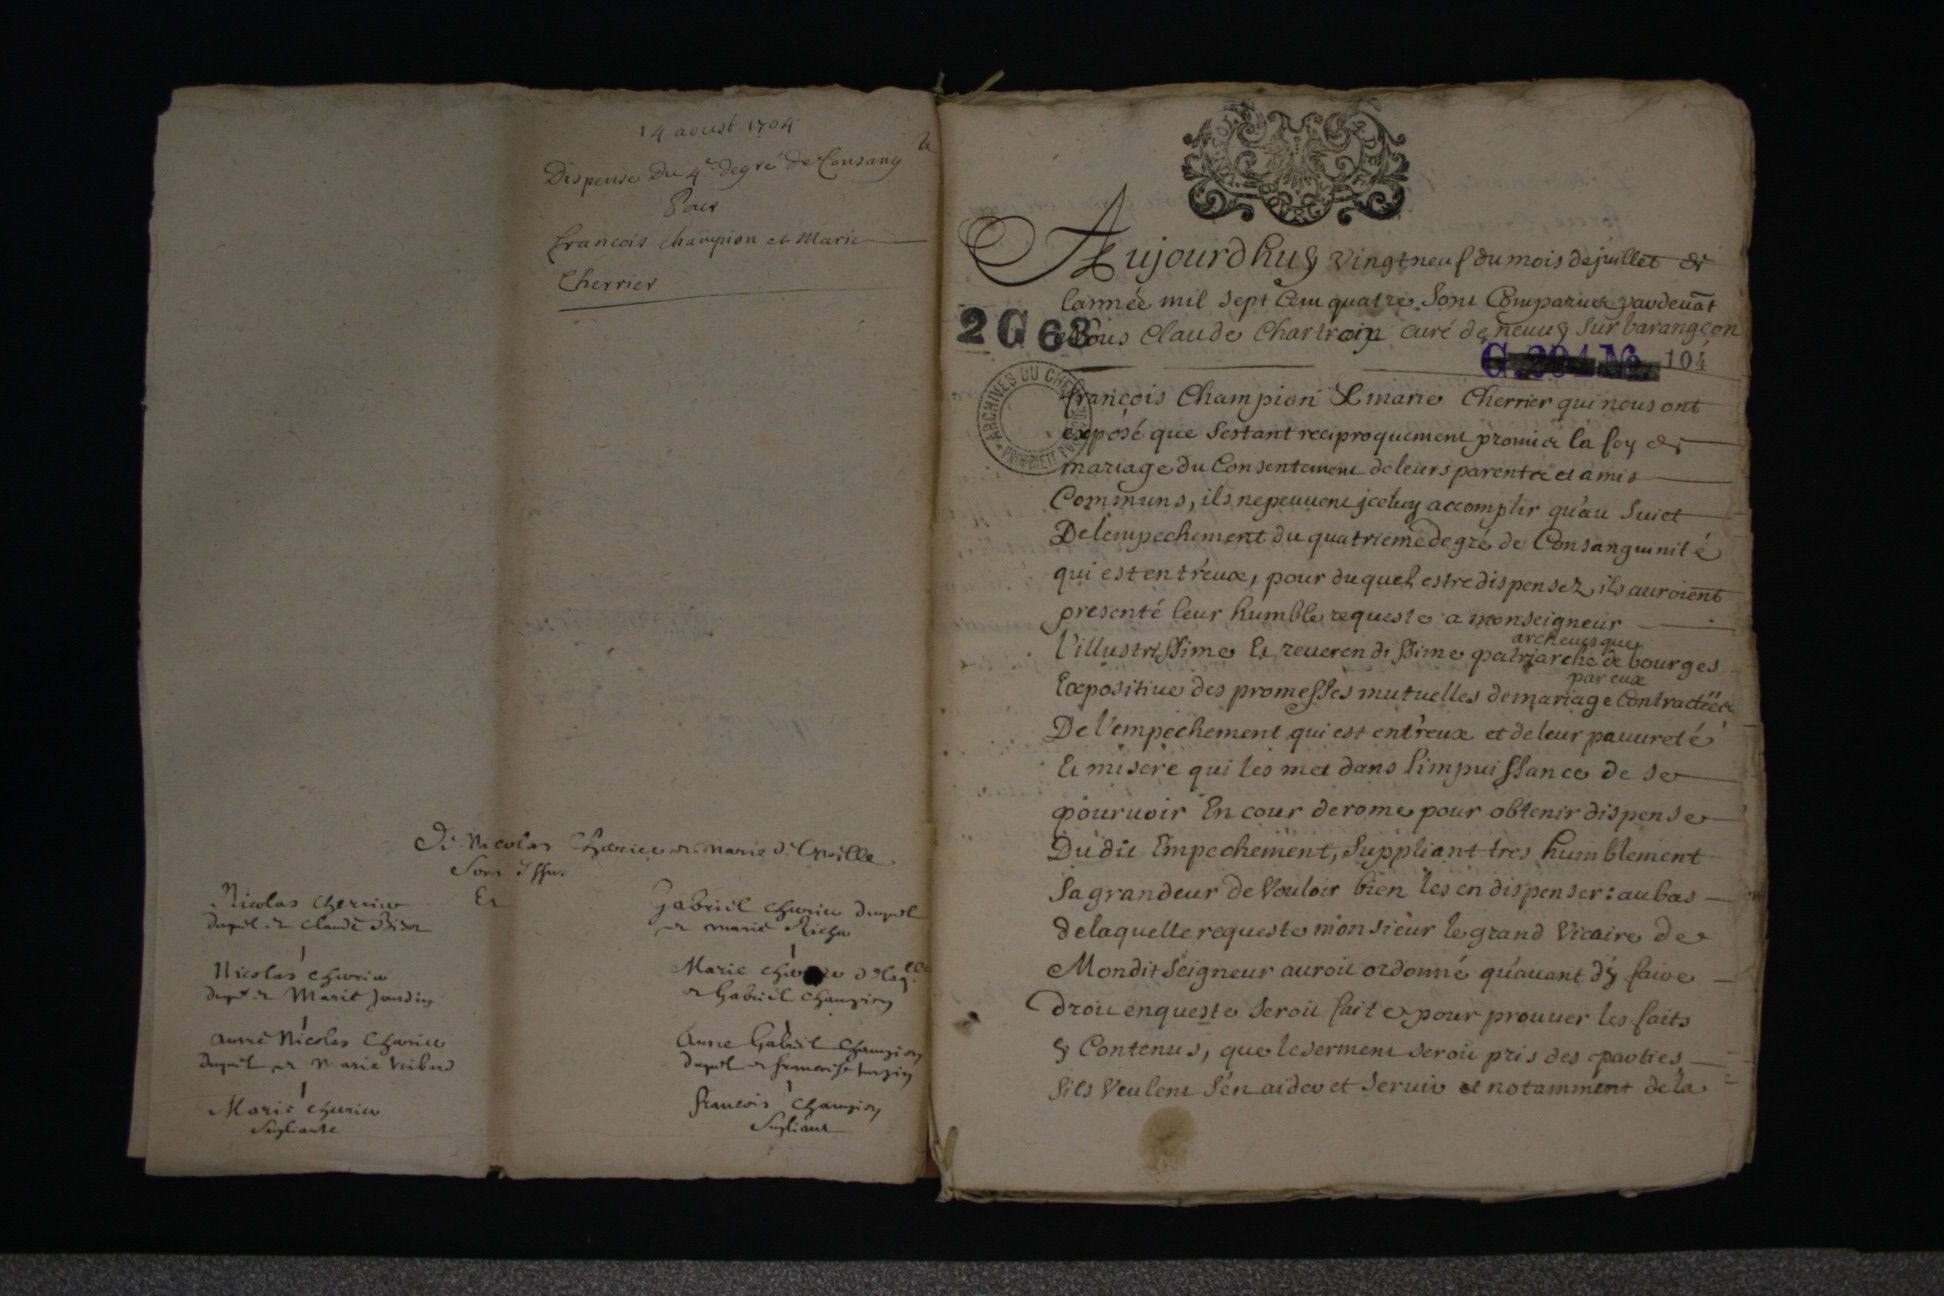 14 aoust 1704
Dispense Du 4e degré de Consang
Pour
francois champion et Marie
Cherrier
De Nicolas Cherier et Marie
Sont issus
Et
Nicolas cherier
duquel et Claude
Nicolas cherier
duquel et Marie Jandin
autre Nicolas Cherier
duquel et Marie
Marie cherier
Supliante
Gabriël cherier duquel
et marie Richer
Marie cheriere de laqlle
et Gabriël Champion
Autre Gabriël Champion
duquel et francoise turpin
francois Champion
Supliant
Aujourdhuy vingtneuf du mois de juillet de
lannée mil sept Cent quatre sont Comparus pardeuāt
Nous Claude Chartroin curé de neuuy sur barangeon
2 G 63
G. 204 No. 104
ARCHIVES DU CHER
PROPRIÉTÉ PUBLIQUE
françois Champion & marie Cherrier qui nous ont
exposé que sestant reciproquement promis la foy de
mariage du Consentement de leurs parents et amis
Communs, ils ne peuuent jceluy accomplir qu'au suiet
De lempechement du quatrieme degré de Consanguinité
qui est entr'eux, pour duquel estre dispensez ils auroient
presenté leur humble requeste a monseigneur
archeuesque
l'illustrissime Et reuerendissime patriarche de bourges
par eux
Expositiue des promesses mutuelles de mariage Contractées
De l'empechement qui est entr'eux et de leur pauureté
Et misere qui les met dans l'impuissance de se
pouruoir En cour de rome pour obtenir dispense
Dudit Empechement, suppliant tres humblement
Sa grandeur de Vouloir bien les en dispenser: au bas
de laquelle requeste monsieur le grand Vicaire de
Mondit Seigneur auroit ordonné qu'auant d'y faire
droit enqueste seroit faite pour prouuer les faits
y Contenus, que le serment seroit pris des parties
sils Veulent s'en aider et seruir et notamment de la